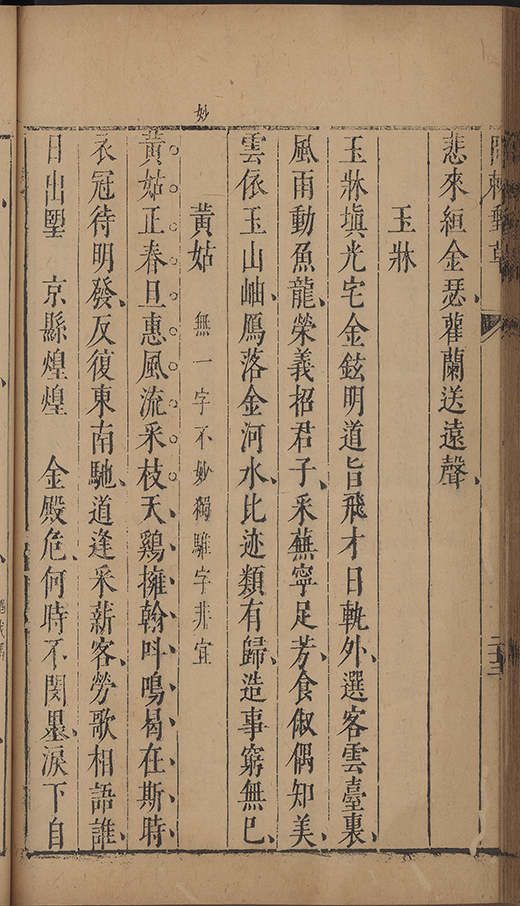 悲來絙金瑟雚蘭送遠聲
玉牀
玉牀塡光宅金鉉明道旨飛才日軌外選客雲臺裏
風雨動魚龍榮義招君子釆蕪寧足芳食俶偶知美
雲依玉山岫鴈落金河水比迹類有歸造事窮無巳
黃姑 無一字不妙獨騅字非宜
妙
黃姑正春旦惠風流釆枝天鷄擁翰呌鳴曷在斯時
衣冠待明發反復東南馳道逢釆薪客勞歌相語誰
日出 京縣煌煌 金殿危何時不閔墨淚下自